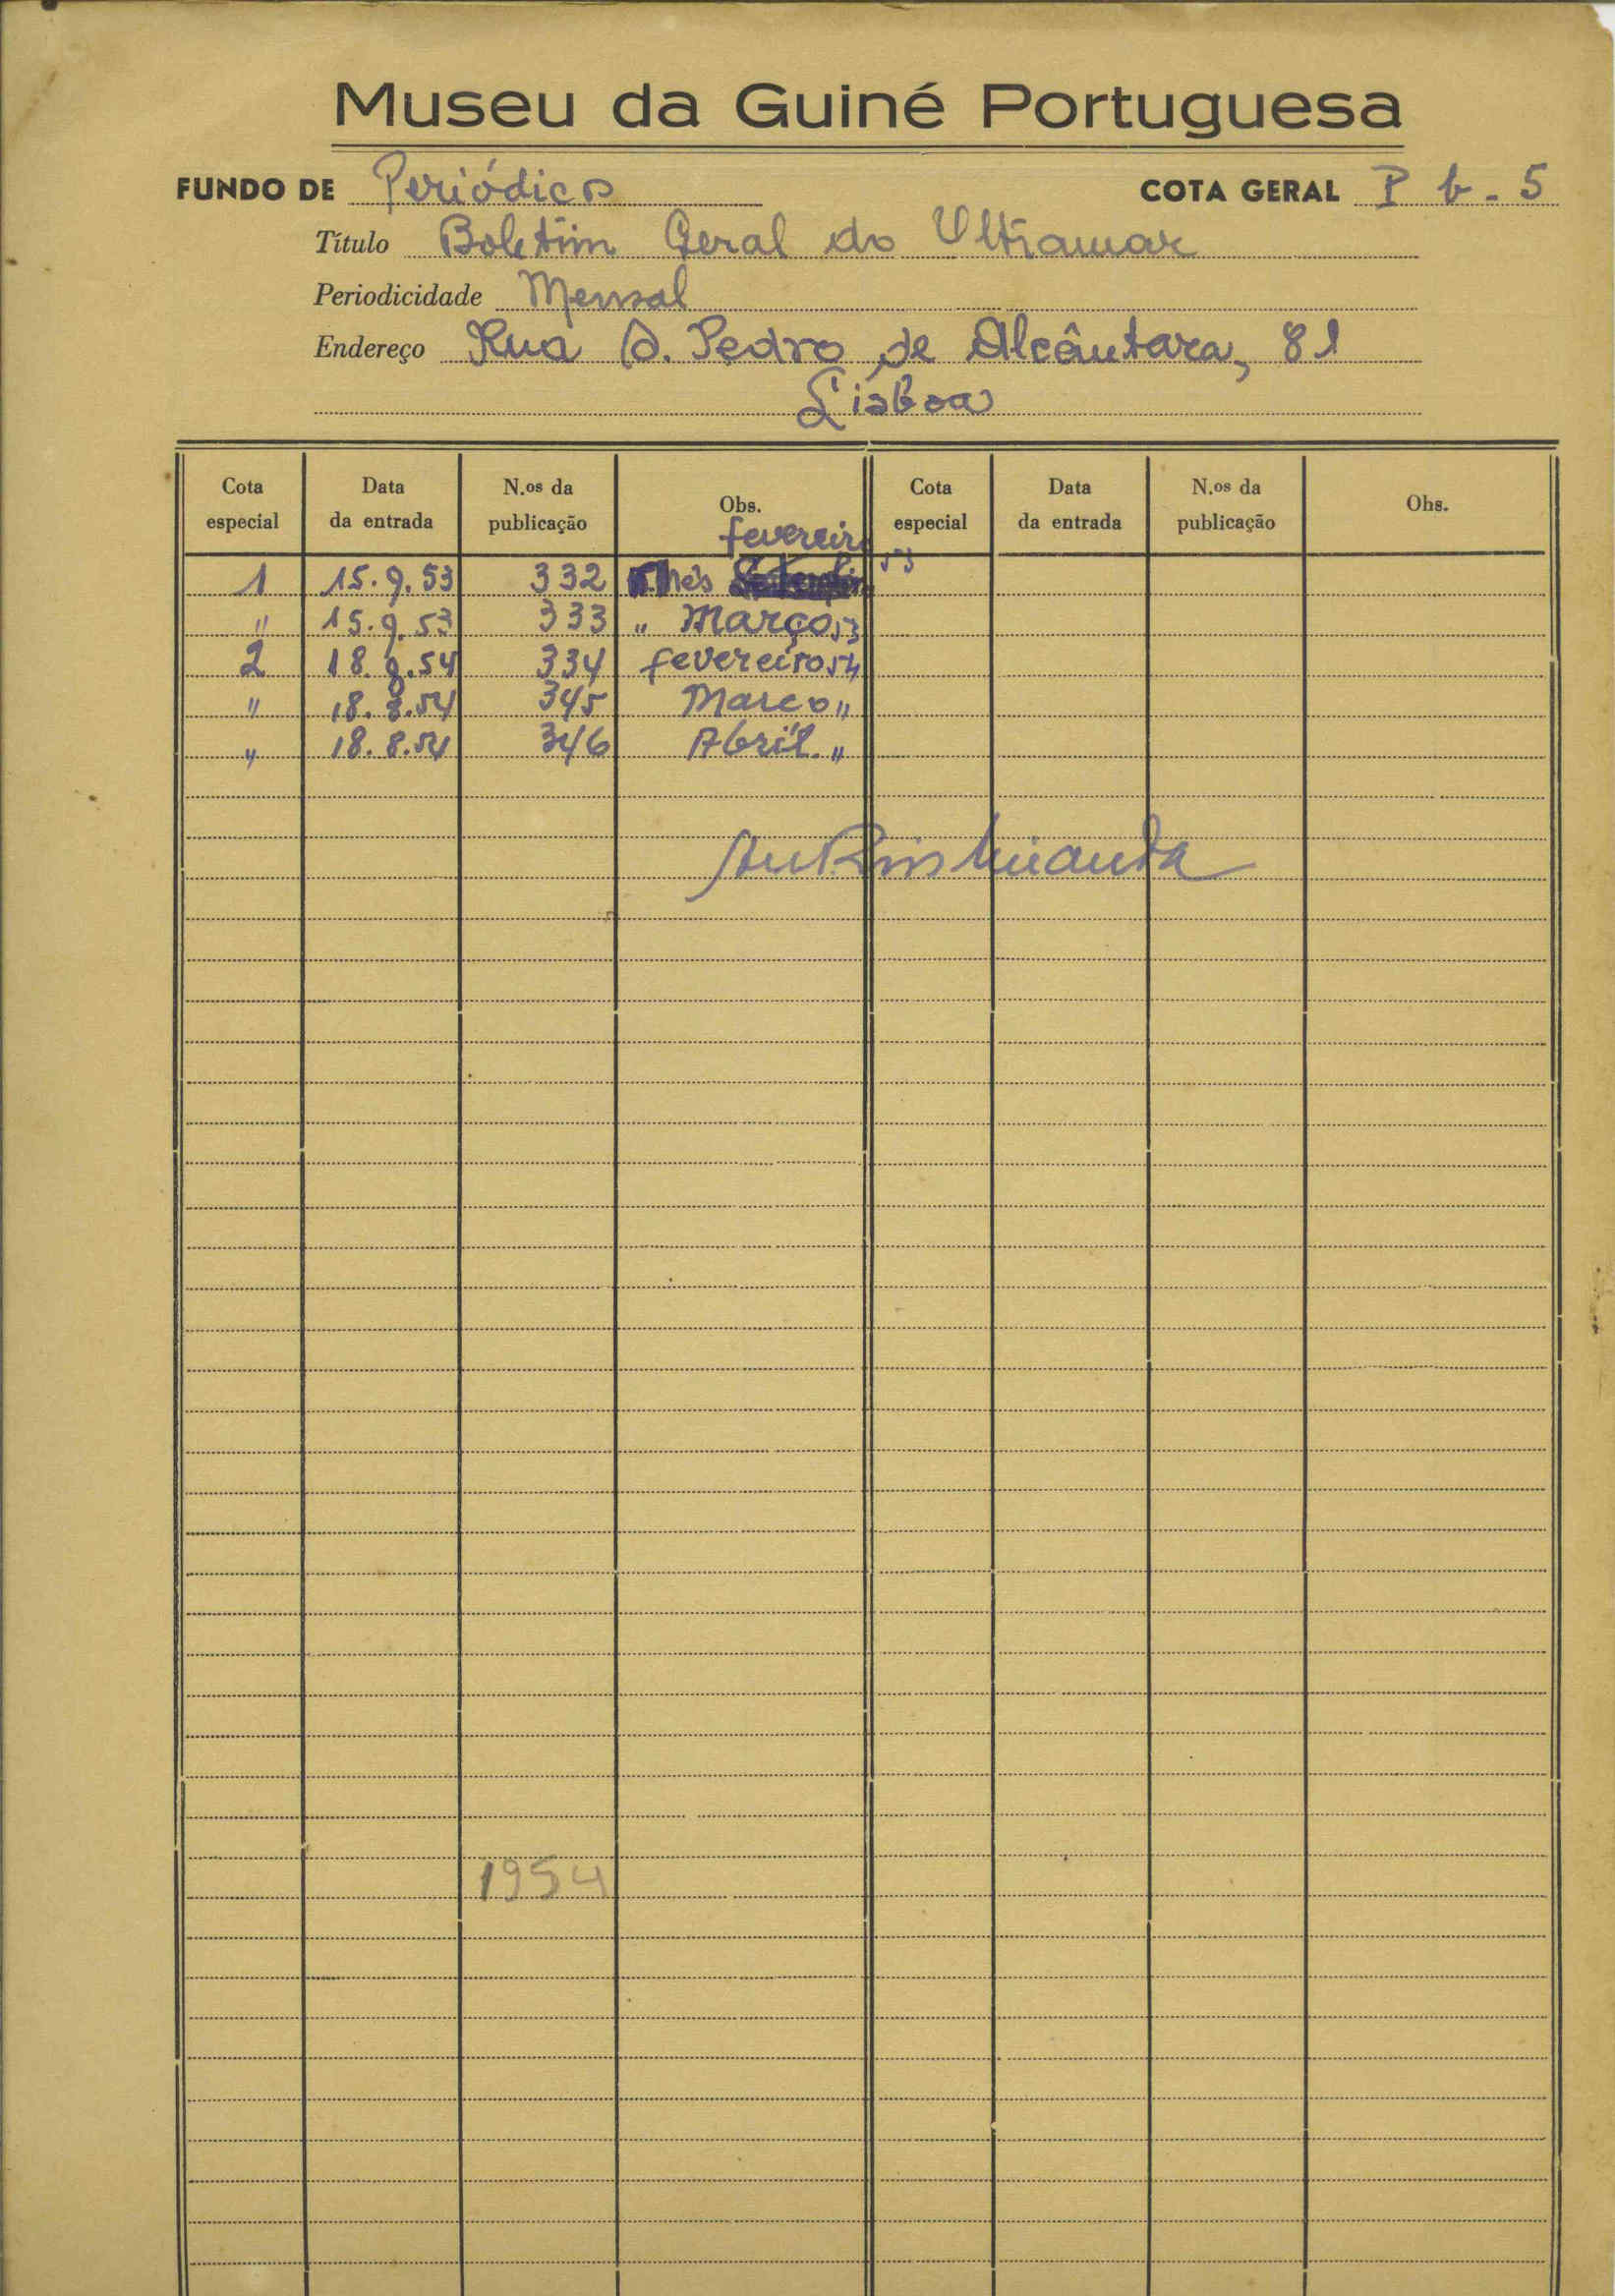 Museu da Guiné Portuguesa
FUNDO DE Periódicos COTA GERAL P b - 5
Título Boletim Geral do Ultramar
Periodicidade Mensal
Endereço Rua S. Pedro de Alcântara, 81
Lisboa
Cota especial Data da entrada N.os da publicação Obs. Cota especial Data da entrada N.os da publicação Obs.
fevereiro 53
1 15.9.53 332 mês
" 15.9.53 333 " Março 53
2 18.8.54 334 fevereiro 54
" 18.8.54 345 Março "
" 18.8.54 346 Abril. "
Miranda
1954